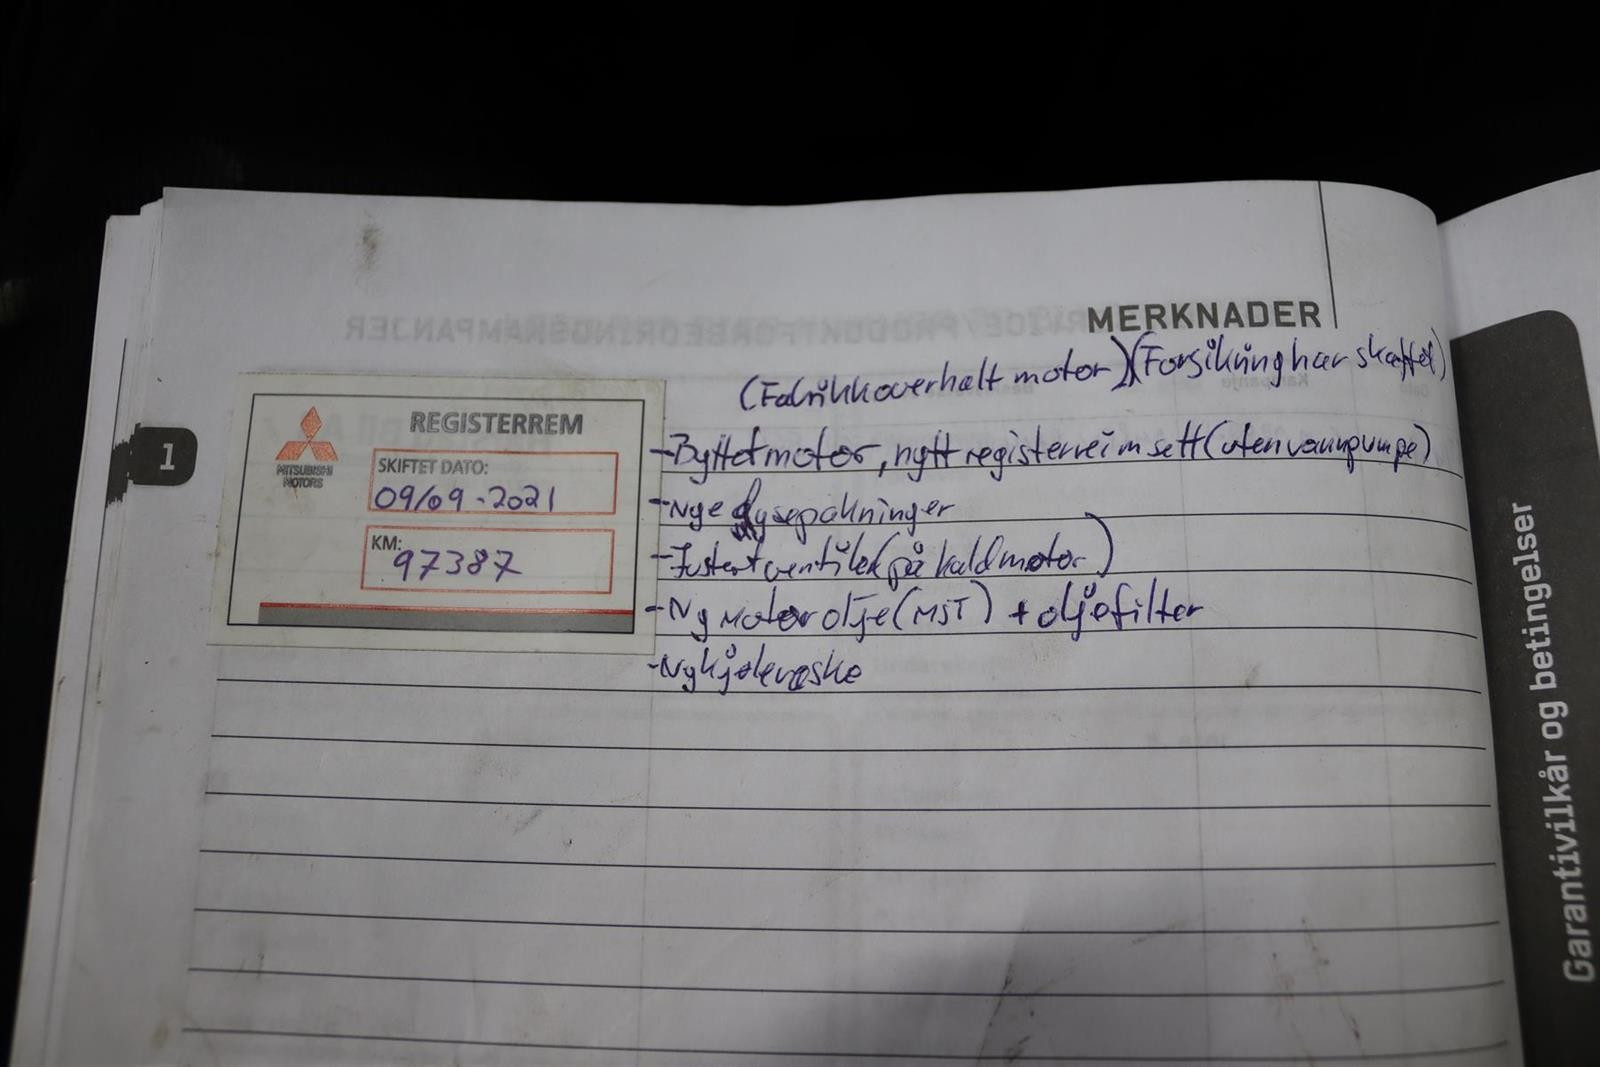 MERKNADER
(Fabrikkoverhalt motor) (Forsikring har skaffet)
- Byttet motor, nytt registerreim sett (uten vannpumpe)
- Nye dysepakninger
- Justert ventiler (på kald motor)
- Ny motor olje (MST) + oljefilter
- Ny kjølevæske
1
REGISTERREM
MITSUBISHI
MOTORS
SKIFTET DATO:
09/09-2021
KM:
97387
Garantivilkår og betingelser